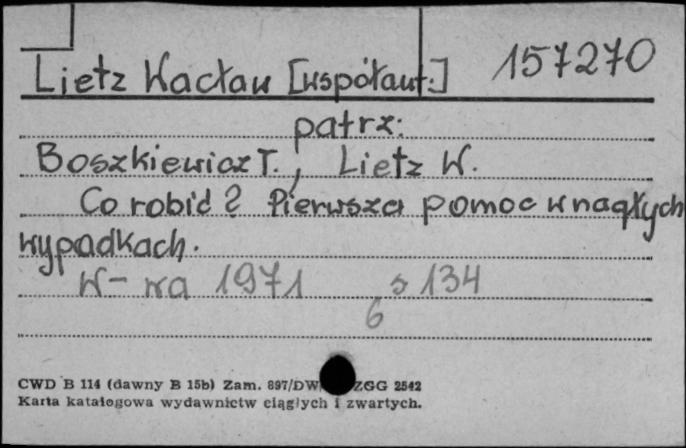 Lietz Wacław [współaut.] 157270
patrz:
Boszkiewicz T., Lietz W.
Co robić? Pierwsza pomoc w nagłych
wypadkach.
W-wa 1971 s 134
6
CWD B 114 (dawny B 15b) Zam. 897/DW ZGG 2542
Karta katalogowa wydawnictw ciągłych i zwartych.